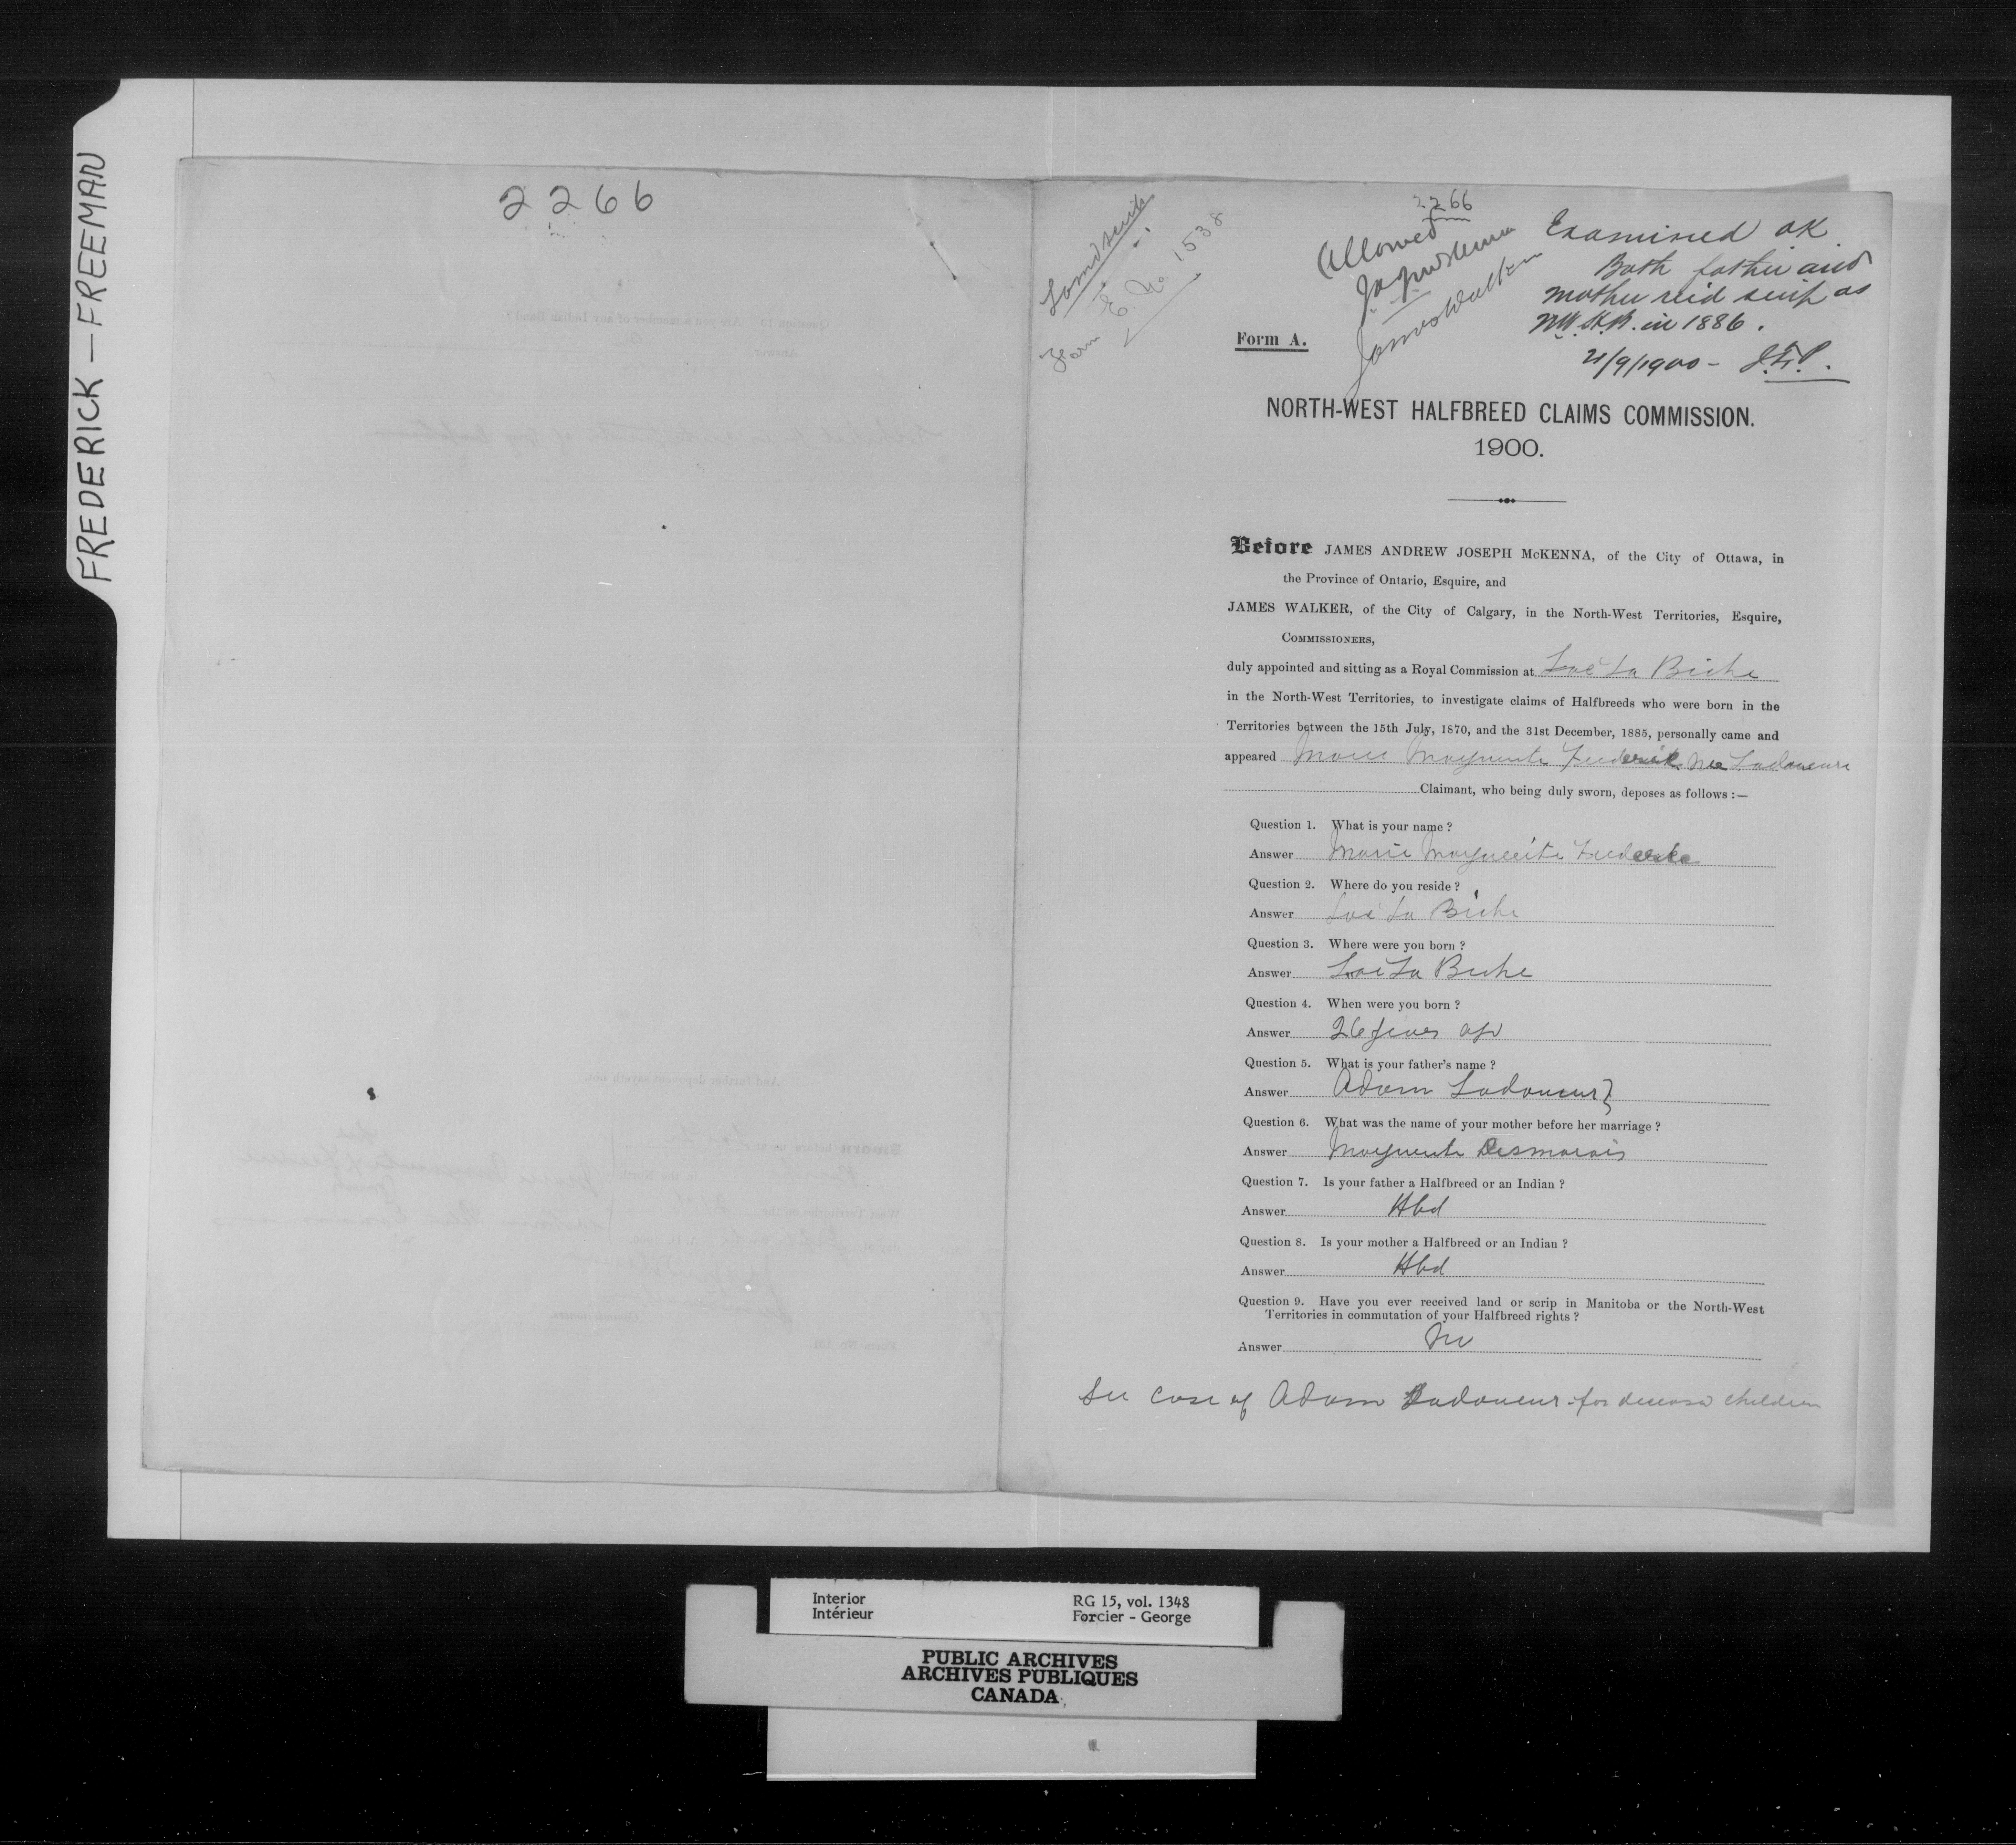 FREDERICK — FREEMAN
2266
Land scrip
Form E. No. 1538
2266
Allowed
J.A.J. McKenna
James Walker
Examined OK.
Both father and
mother rec'd scrip as
N.W. H.B. in 1886.
21/9/1900 -
Form A.
NORTH-WEST HALFBREED CLAIMS COMMISSION.
1900.
Before JAMES ANDREW JOSEPH McKENNA, of the City of Ottawa, in
the Province of Ontario, Esquire, and
JAMES WALKER, of the City of Calgary, in the North-West Territories, Esquire,
COMMISSIONERS,
duly appointed and sitting as a Royal Commission at Lac La Biche
in the North-West Territories, to investigate claims of Halfbreeds who were born in the
Territories between the 15th July, 1870, and the 31st December, 1885, personally came and
appeared Marie Marguerite Frederick nee Ladouceur
Claimant, who being duly sworn, deposes as follows :—
Question 1. What is your name ?
Answer Marie Marguerite Frederick
Question 2. Where do you reside ?
Answer Lac La Biche
Question 3. Where were you born ?
Answer Lac La Biche
Question 4. When were you born ?
Answer 26 years ago
Question 5. What is your father's name ?
Answer Adam Ladouceur
Question 6. What was the name of your mother before her marriage ?
Answer Marguerite Desmarais
Question 7. Is your father a Halfbreed or an Indian ?
Answer Hbd
Question 8. Is your mother a Halfbreed or an Indian ?
Answer Hbd
Question 9. Have you ever received land or scrip in Manitoba or the North-West
Territories in commutation of your Halfbreed rights ?
Answer No
See case of Adam Ladouceur - for deceased children
Interior
Intérieur
RG 15, vol. 1348
Forcier - George
PUBLIC ARCHIVES
ARCHIVES PUBLIQUES
CANADA